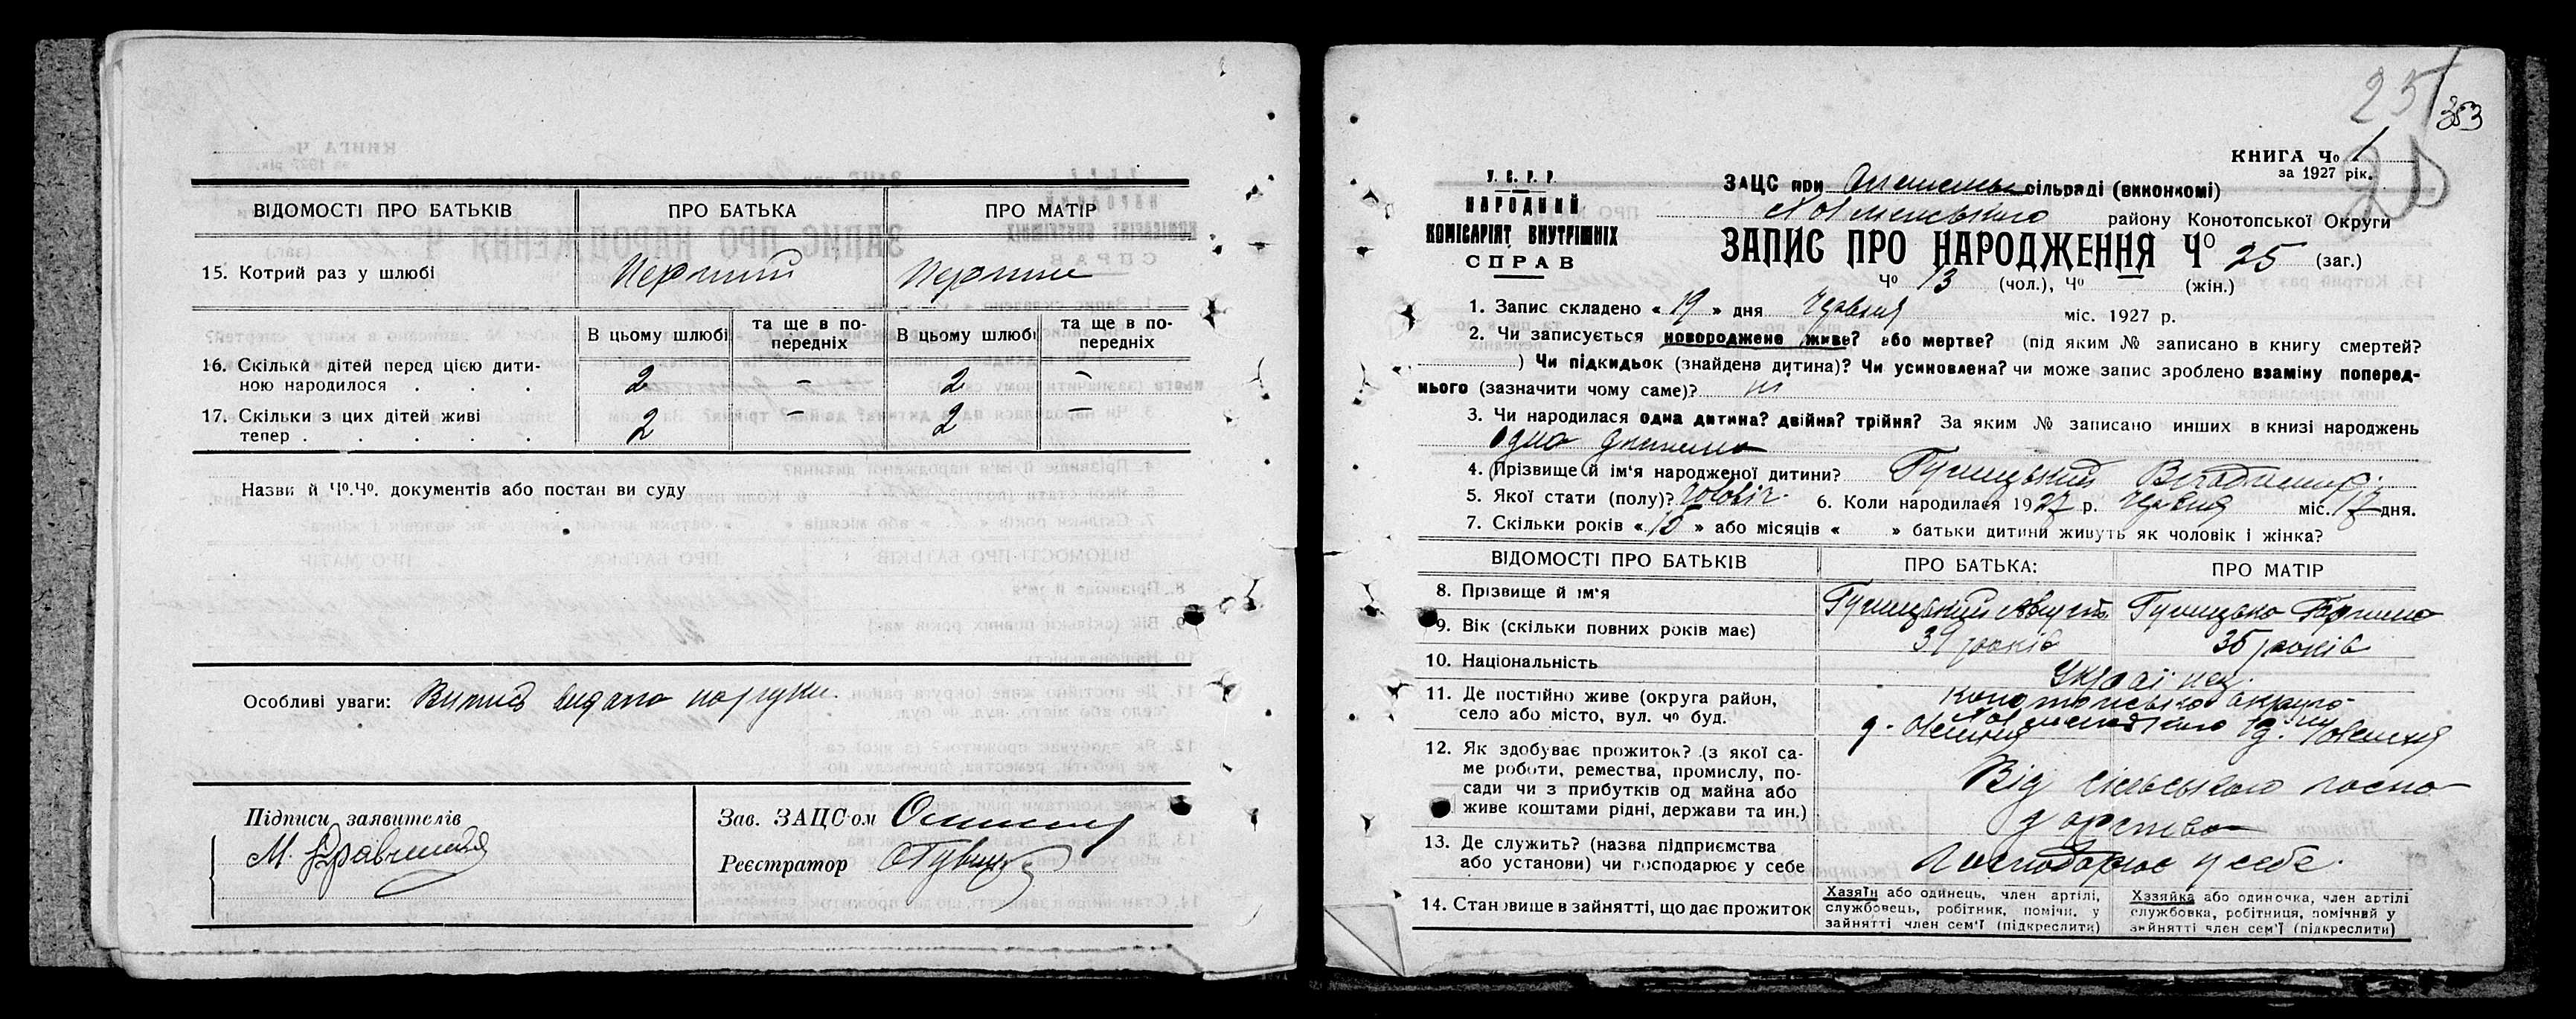 ВІДОМОСТІ ПРО БАТЬКІВ
ПРО БАТЬКА
ПРО МАТІР
15. Котрий раз у шлюбі
Перший
Перший
В цьому шлюбі
та ще в по-
передніх
В цьому шлюбі
та ще в по-
передніх
16. Скільки дітей перед цією дити-
ною народилося . . .
2 - 2 -
17. Скільки з цих дітей живі
тепер . . . . .
2 - 2 -
Назви й Чо.Чо. документів або постанови суду
Особливі уваги: Витяг видано на руки.
Підписи заявителів
М. Кравченко
Зав. ЗАЦС-ом
Реєстратор
25
353
КНИГА Чо 1
за 1927 рік.
25
У. С. Р. Р.
НАРОДНИЙ
КОМІСАРІЯТ ВНУТРІШНІХ
СПРАВ
ЗАЦС при сільраді (виконкомі)
Холменського району Конотопської Округи
ЗАПИС ПРО НАРОДЖЕННЯ Чо 25 (заг.)
Чо 13 (чол.), Чо (жін.)
1. Запис складено « 19 » дня Червня міс. 1927 р.
2. Чи записується новороджене живе? або мертве? (під яким № записано в книгу смертей?
) Чи підкидьок (знайдена дитина)? Чи усиновлена? чи може запис зроблено взаміну поперед-
нього (зазначити чому саме)? ні
3. Чи народилася одна дитина? двійня? трійня? За яким № записано инших в книзі народжень
одна дитина
4. Прізвище й ім'я народженої дитини? Владимир.
5. Якої стати (полу)? чоловіч. 6. Коли народилася 1927 р. Червня міс. 17 дня.
7. Скільки років « 15 » або місяців « » батьки дитини живуть як чоловік і жінка?
ВІДОМОСТІ ПРО БАТЬКІВ
ПРО БАТЬКА:
ПРО МАТІР
8. Прізвище й ім'я
Август
9. Вік (скільки повних років має)
39 років
35 років
10. Національність
Україн.
11. Де постійно живе (округа район,
село або місто, вул. чо буд.
Конотопського округа
12. Як здобуває прожиток? (з якої са-
ме роботи, ремества, промислу, по-
сади чи з прибутків од майна або
живе коштами рідні, держави та ин.)
Від сільського госпо
дарства
13. Де служить? (назва підприємства
або установи) чи господарює у себе
Господарює у себе.
14. Становище в зайнятті, що дає прожиток
Хазяїн або одинець, член артілі,
службовець, робітник, помічн. у
зайнятті член сем'ї (підкреслити)
Хазяйка або одиночка, член артілі
службовка, робітниця, помічний у
зайнятті член сем'ї (підкреслити)